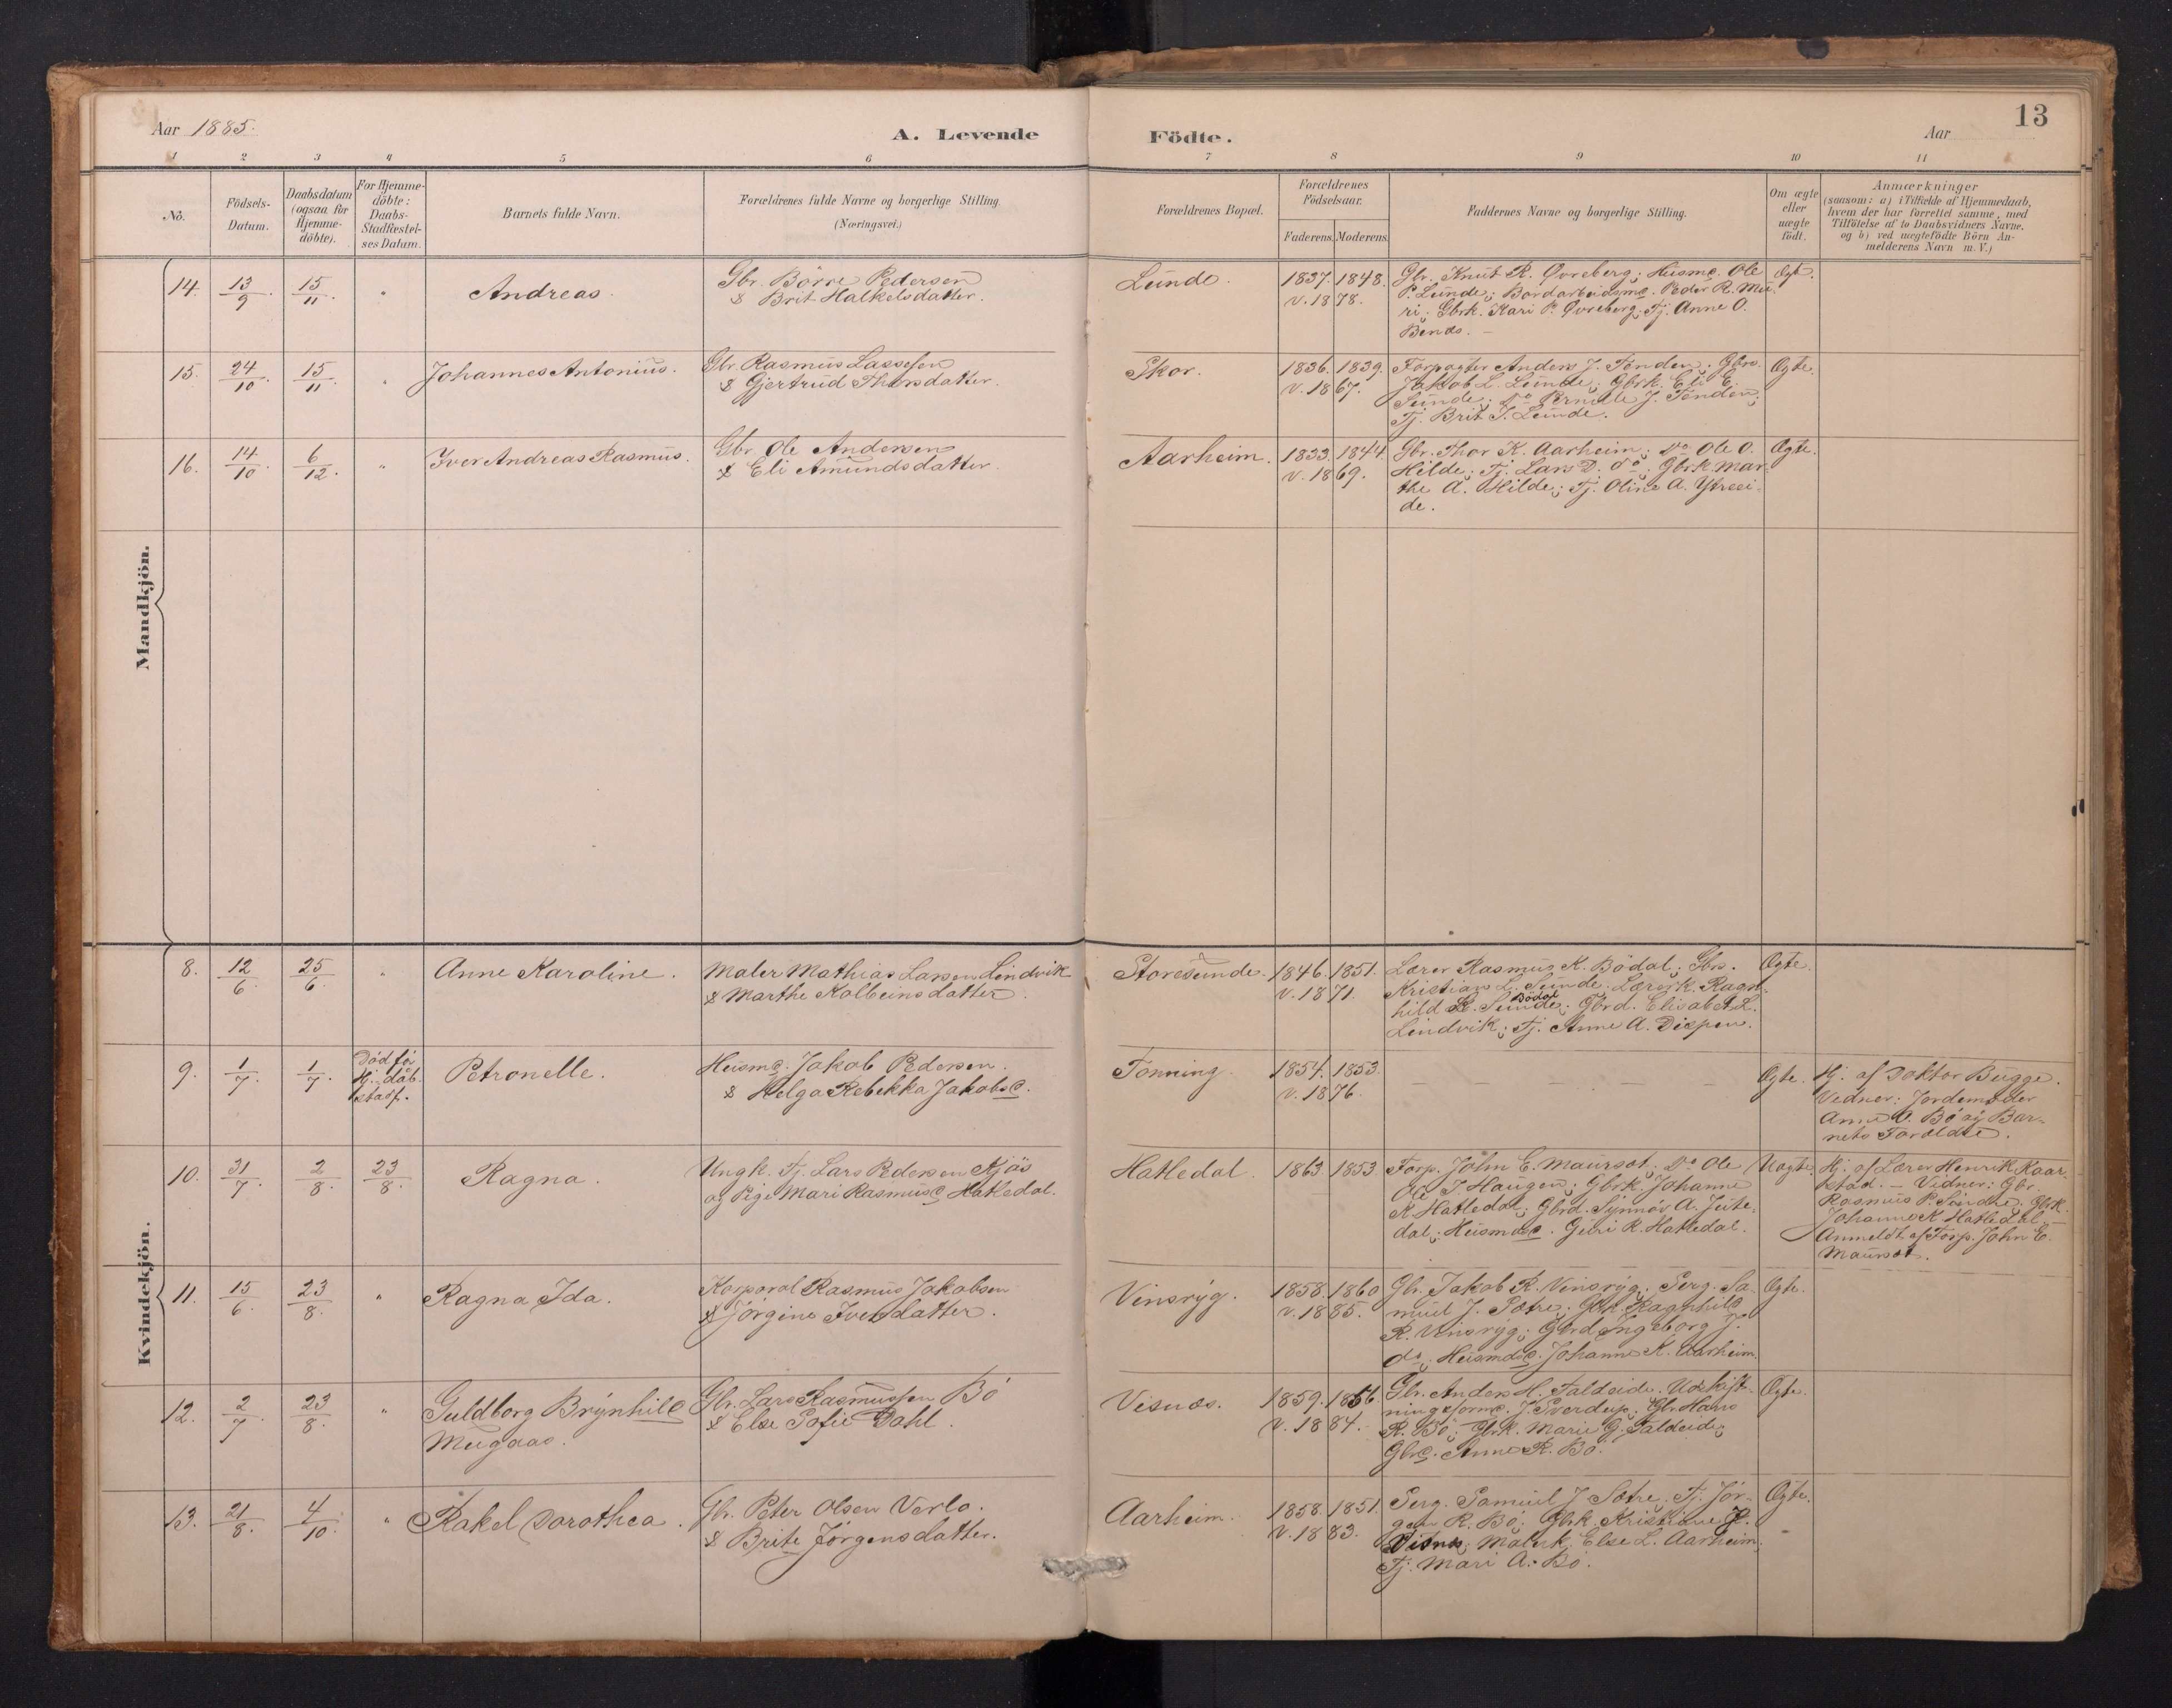 Aar 1885.
A. Levende
Födte.
Aar
13
1 2 3 4 5 6 7 8 9 10 11
No.
Födsels-
Datum.
Daabsdatum
(ogsaa for
Hjemme-
döbte).
For Hjemme-
döbte:
Daabs-
Stadfæstel-
ses Datum.
Barnets fulde Navn.
Forældrenes fulde Navne og borgerlige Stilling.
(Næringsvei.)
Forældrenes Bopæl.
Forældrenes
Födselsaar.
Faderens. Moderens.
Faddernes Navne og borgerlige Stilling.
Om ægte
eller
uægte
födt.
Anmærkninger
(saasom: a) i Tilfælde af Hjemmedaab,
hvem der har forrettet samme, med
Tilföielse af to Daabsvidners Navne.
og b) ved uægtefödte Börn An-
melderens Navn m. V.)
Mandkjön.
14. 13/9. 15/11. " Andreas.
Gbr. Börre Pedersen
& Brit Halkelsdatter.
Lunde.
1837. 1848.
v. 1878.
Gbr. Knut R. Øvreberg; Husmd. Ole
P. Lunde; Bordarbeidsmd. Peder R. Mu-
ri; Gbrk. Kari P. Øvreberg; Tj. Anne O.
Bends. –
Ægte.
15. 24/10. 15/11. " Johannes Antonius.
Gbr. Rasmus Lassesen
& Gjertrud Thorsdatter.
Skor.
1836. 1839.
v. 1867.
Forpagter Anders J. Tenden; Gbrs.
Jakob L. Lunde; Gbrk. Eli E.
Sunde; Do Pernille J. Tenden;
Tj. Brit J. Lunde.
Ægte.
16. 14/10 6/12. " Iver Andreas Rasmus.
Gbr. Ole Andersen
& Eli Amundsdatter.
Aarheim.
1833. 1844.
v. 1869.
Gbr. Thor K. Aarheim; Do Ole O.
Hilde; Tj. Lars D. do; Gbrk. Mar-
the A. Hilde; Tj. Oline A. Ytreei-
de.
Ægte.
Kvindekjön.
8. 12/6. 25/6. " Anne Karoline.
Maler Mathias Larsen Lindvik
& Marthe Kolbeinsdatter.
Storesunde.
1846. 1851.
v. 1871.
Lærer Rasmus K. Bödal; Gbrs.
Kristian L. Sunde; Lærerk. Ragn-
hild Bödal; Gbrd. Elisabet L.
Lindvik; Tj. Anne A.
Ægte.
9. 1/7. 1/7. Död för
Hj. dåb.
stadf.
Petronelle.
Husmd. Jakob Pedersen.
& Helga Rebekka Jakobsd.
Tonning.
1854. 1853.
v. 1876.
– – – –
Ægte.
Hj. af Doktor Bugge.
Vidner: Jordemoder
Anne A. Bö og Bar-
nets Forældre.
10. 31/7. 2/8. 23/8. Ragna.
Ungk. Tj. Lars Pedersen Kjös
og Pige Mari Rasmusd. Hatledal.
Hatledal.
1863. 1853.
Forp. John E. Maurset; Do Ole
J. Haugen; Gbrk. Johanne
K. Hatledal; Gbrd. Synnöv A. Jute-
dal; Husmdsd. Guri R. Hatledal.
Uægte.
Hj. af Lærer Henrik Kaar-
stad. – Vidner: Gbr.
Rasmus P. Söndre; Gbrk.
Johanne K. Hatledal –
Anmeldt af Forp. John E.
Maurset.
11. 15/6. 23/8. " Ragna Ida.
Korporal Rasmus Jakobsen
& Jörgine Iversdatter.
Vinsryg.
1858. 1860
v. 1885.
Gbr. Jakob R. Vinsryg; Serg. Sa-
muel J. Sætre; Gbrk. Ragnhild
R. Vinsryg; Gbrd. Ingeborg J.
do; Husmdsd. Johanne K. Aarheim.
Ægte.
12. 2/7. 23/8. " Guldborg Brynhild
Mugaas.
Gbr. Lars Rasmussen Bö
& Else Sofie Dahl.
Visnæs.
1859. 1856.
v. 1884.
Gbr. Anders H. Faleide; Udskift-
ningsformd. J. Sverdup; Gbr. Hans
R. Bö; Gbrk. Marie G. Faleide;
Gbrd. Anne R. Bö.
Ægte.
13. 21/8. 4/10. " Rakel Dorothea.
Gbr. Peter Olsen Verlo.
& Brite Jörgensdatter.
Aarheim.
1858. 1851.
v. 1883.
Serg. Samuel J. Sætre; Tj. Jör-
gen R. Bö; Gbrk. Kristiane J.
Visnes; Malerk. Else L. Aarheim;
Tj. Mari A. Bö.
Ægte.